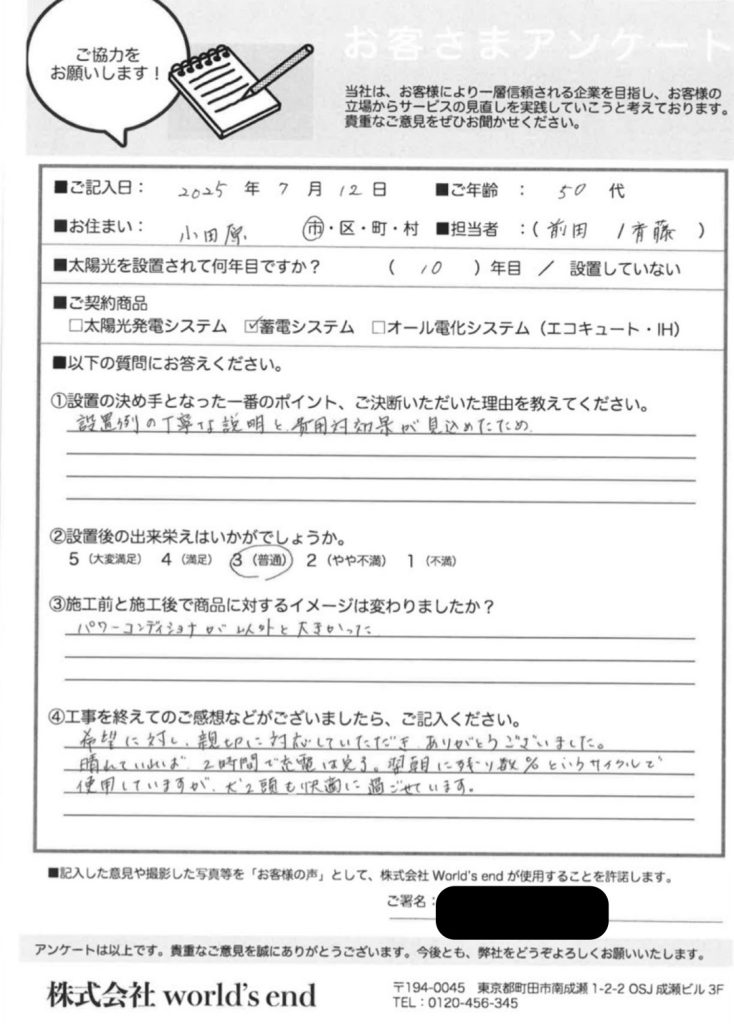 ご協力を
お願いします！
お客さまアンケート
当社は、お客様により一層信頼される企業を目指し、お客様の
立場からサービスの見直しを実践していこうと考えております。
貴重なご意見をぜひお聞かせください。
■ご記入日： 2025 年 7 月 12 日 ■ご年齢 ： 50 代
■お住まい： 小田原 市・区・町・村 ■担当者 ：( 前田 / 斉藤 )
■太陽光を設置されて何年目ですか？ ( 10 ) 年目 ／ 設置していない
■ご契約商品
□太陽光発電システム ☑蓄電システム □オール電化システム（エコキュート・IH）
■以下の質問にお答えください。
①設置の決め手となった一番のポイント、ご決断いただいた理由を教えてください。
設置例の丁寧な説明と、費用対効果が見込めたため
②設置後の出来栄えはいかがでしょうか。
5（大変満足） 4（満足） 3（普通） 2（やや不満） 1（不満）
③施工前と施工後で商品に対するイメージは変わりましたか？
パワーコンディショナが以外と大きかった
④工事を終えてのご感想などがございましたら、ご記入ください。
希望に対し、親切に対応していただき、ありがとうございました。
晴れていれば、2時間で充電は完了。翌朝に残り数%というサイクルで
使用していますが、犬2頭も快適に過ごせています。
■記入した意見や撮影した写真等を「お客様の声」として、株式会社 World's end が使用することを許諾します。
ご署名：
アンケートは以上です。貴重なご意見を誠にありがとうございます。今後とも、弊社をどうぞよろしくお願いいたします。
株式会社 world's end
〒194-0045 東京都町田市南成瀬 1-2-2 OSJ 成瀬ビル 3F
TEL：0120-456-345